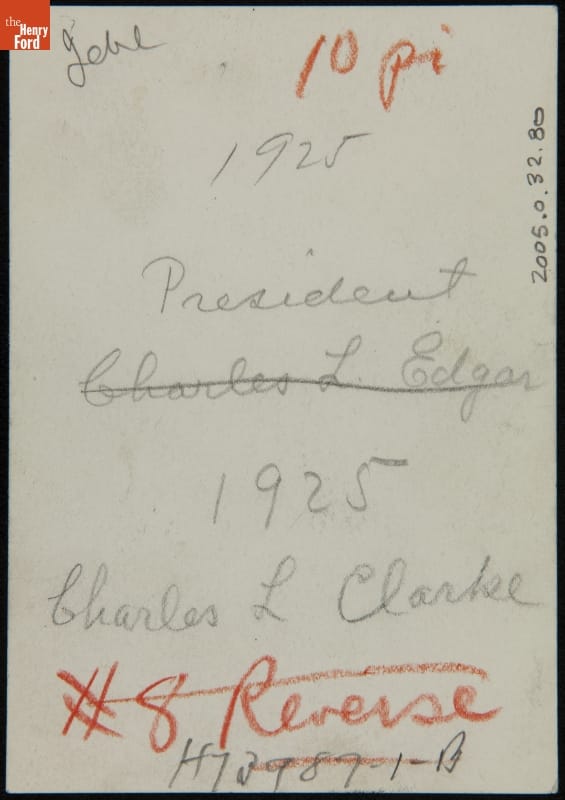 the
Henry
Ford
10 pi
1925
2005.0.32.80
President
Charles L. Edgar
1925
Charles L Clarke
#8 Reverse